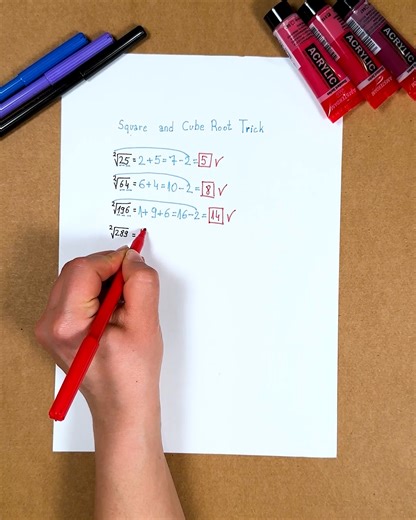 Square and Cube Root Trick
²√25 = 2+5=7-2= 5 ✓
²√64 = 6+4=10-2= 8 ✓
²√196 = 1+9+6=16-2= 14 ✓
²√289 =
ACRYLIC
ACRYLIC
ACRYLIC